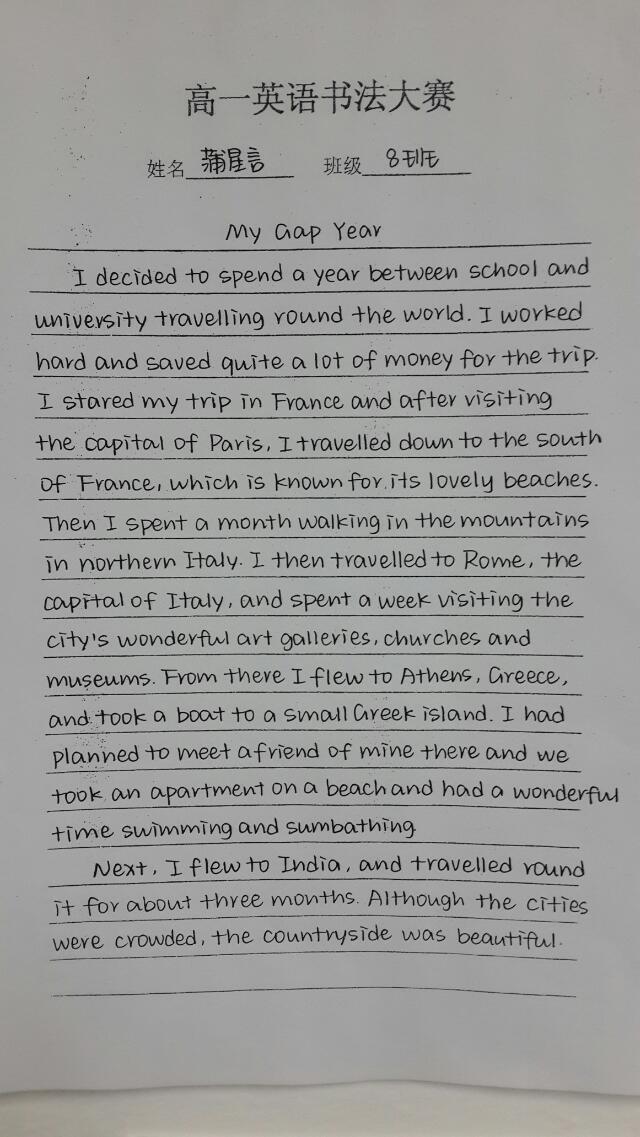 高一英语书法大赛
姓名 蒲星言 班级 8班
My Gap Year
I decided to spend a year between school and
university travelling round the world. I worked
hard and saved quite a lot of money for the trip.
I stared my trip in France and after visiting
the capital of Paris, I travelled down to the south
of France, which is known for its lovely beaches.
Then I spent a month walking in the mountains
in northern Italy. I then travelled to Rome, the
capital of Italy, and spent a week visiting the
city's wonderful art galleries, churches and
museums. From there I flew to Athens, Greece,
and took a boat to a small Greek island. I had
planned to meet a friend of mine there and we
took an apartment on a beach and had a wonderful
time swimming and sumbathing
Next, I flew to India, and travelled round
it for about three months. Although the cities
were crowded, the countryside was beautiful.